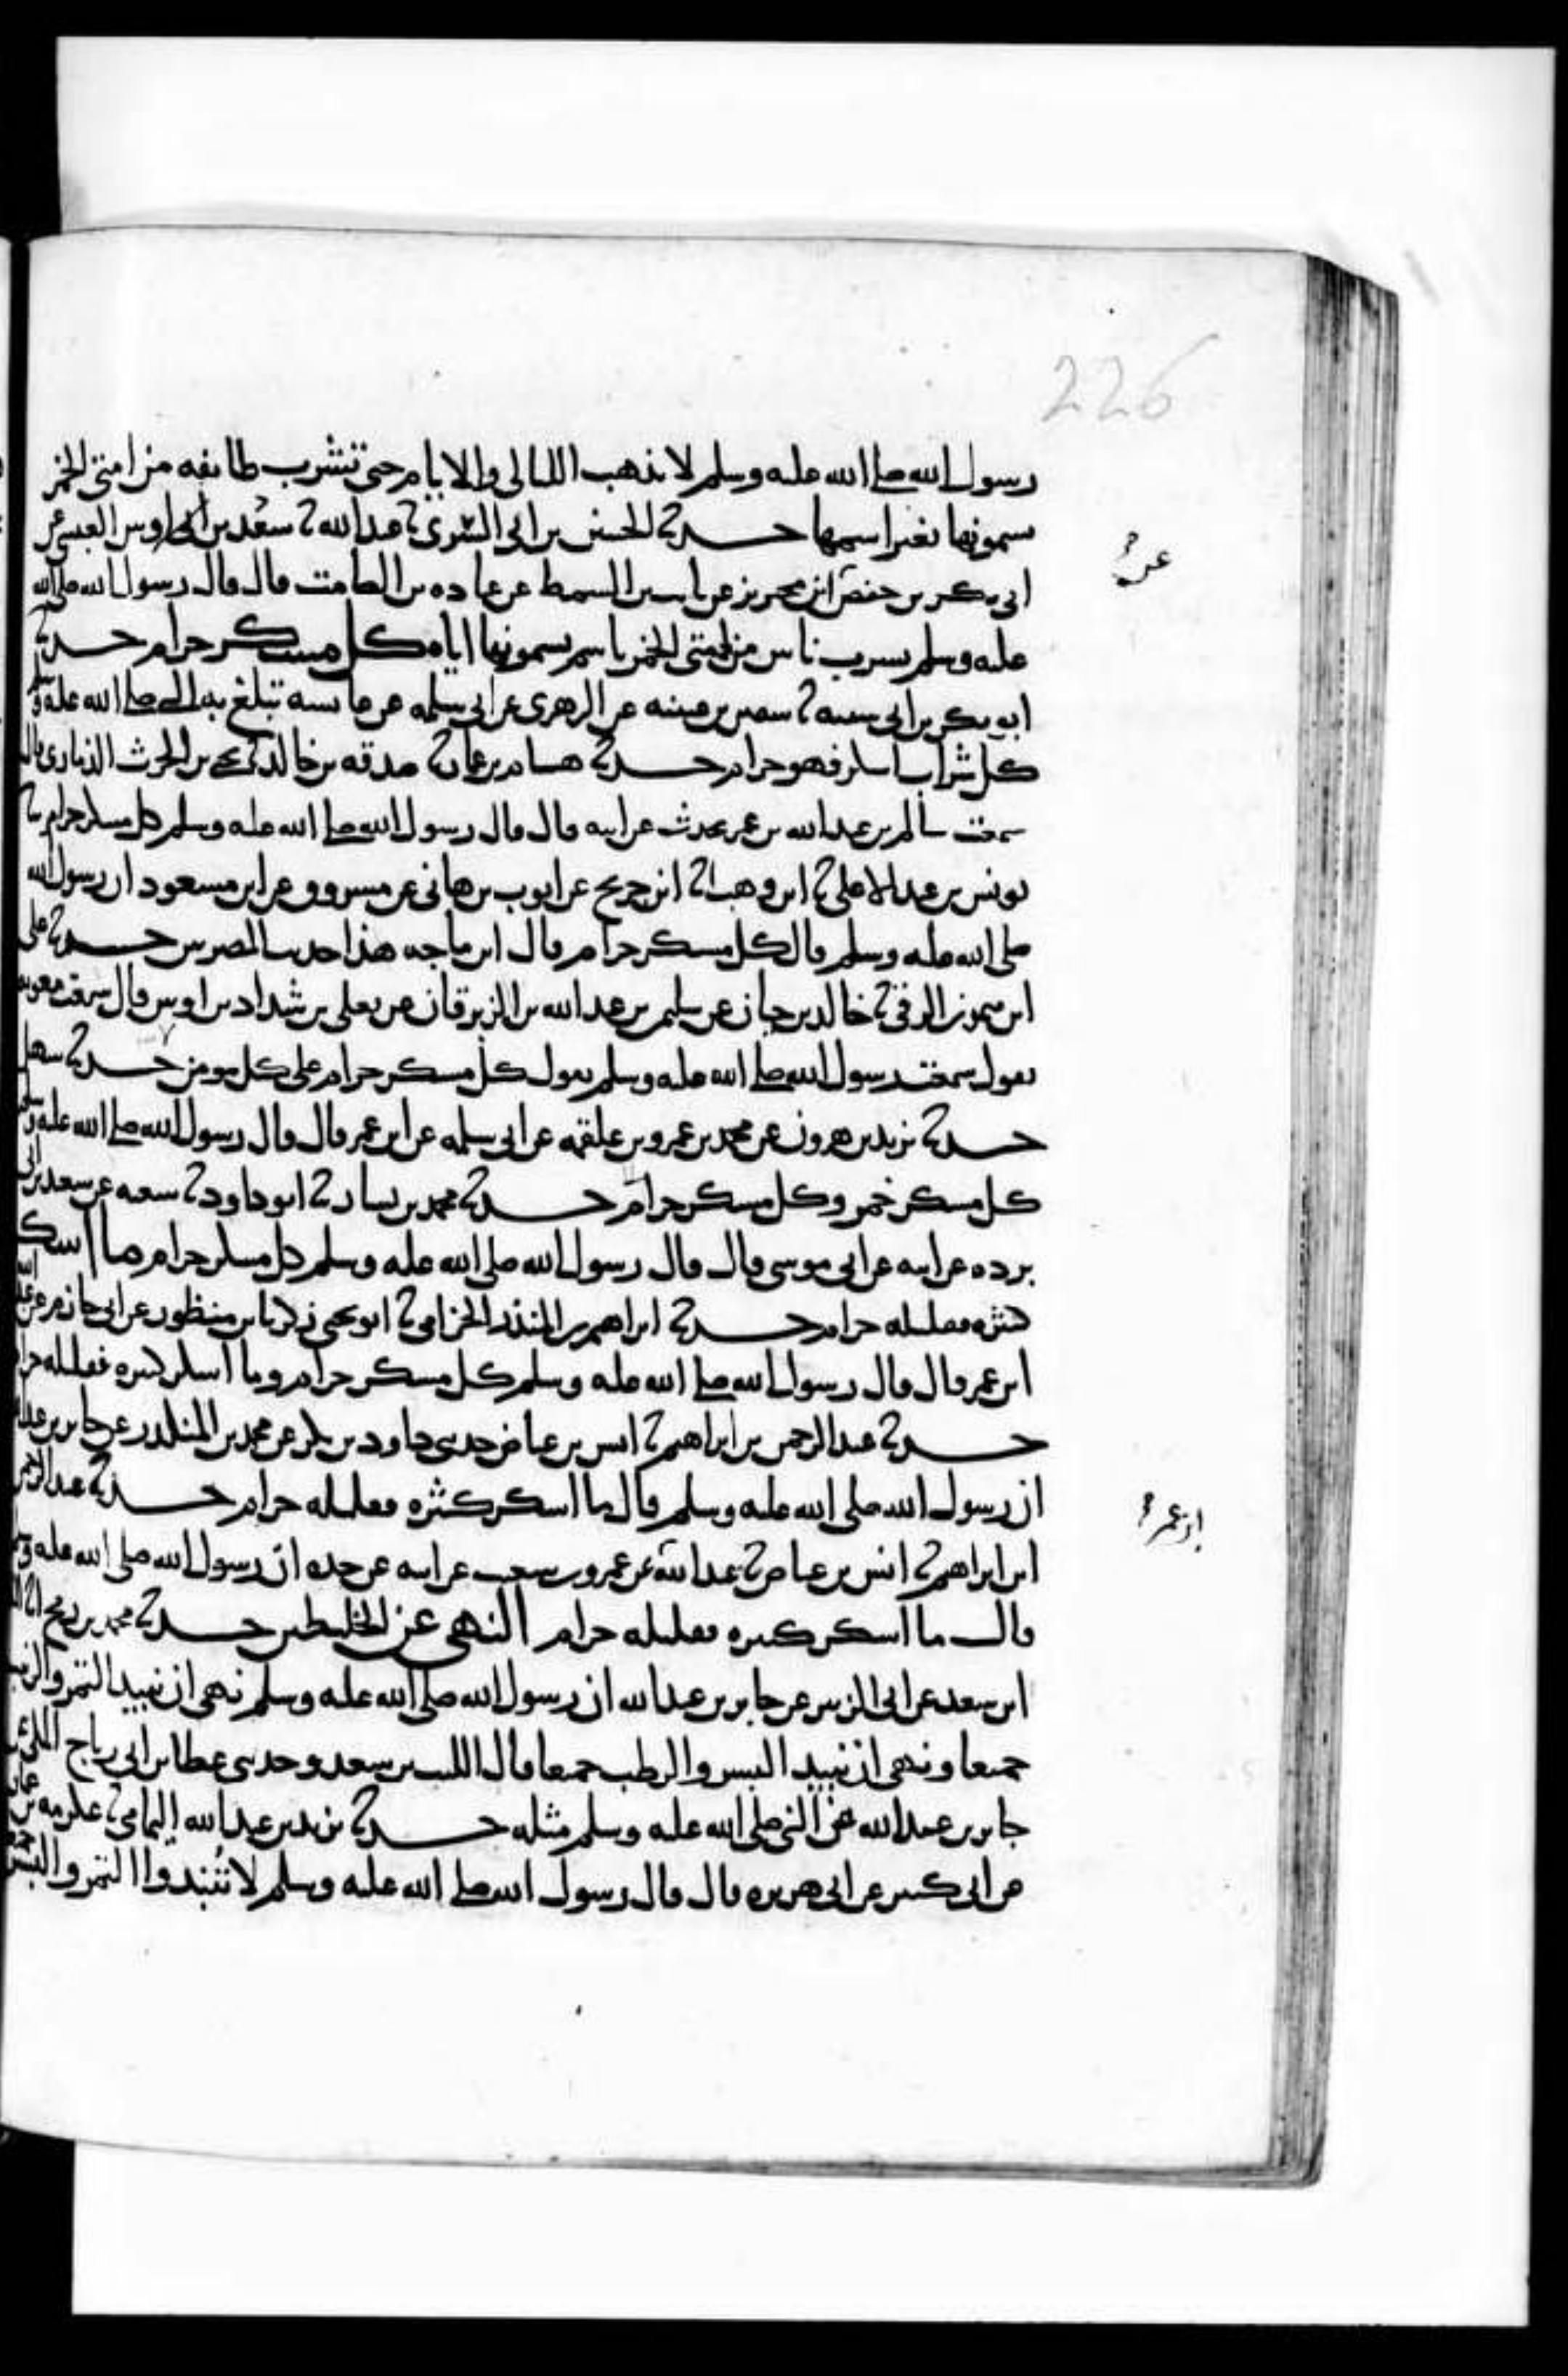 226
رسول الله صلى الله عليه وسلم لا تذهب الليالي والايام حتى تشرب طائفه من امتي الخمر
يسمونها بغير اسمها حدثنا الحسين بن ابي السري ثنا عبد الله ثنا سعد بن اوس العبسي عن
عن
ابي بكر بن حفص ابن محيريز عن ثابت بن السمط عن عباده بن الصامت قال قال رسول الله صلى الله
عليه وسلم يشرب ناس من امتي الخمر باسم يسمونها اياه كل مسكر حرام حدثنا
ابو بكر بن ابي شيبه ثنا سفين بن عيينه عن الزهري عن ابي سلمه عن عائشه تبلغ به النبي صلى الله عليه وسلم
كل شراب اسكر فهو حرام حدثنا هشام بن عمار ثنا صدقه بن خالد ثنا يحيى بن الحرث الذماري قال
سمعت سالم بن عبد الله بن عمر يحدث عن ابيه قال قال رسول الله صلى الله عليه وسلم كل مسكر حرام ثنا
يونس بن عبد الاعلى ثنا ابن وهب انا ابن جريج عن ايوب بن هاني عن مسروق عن ابن مسعود ان رسول الله
صلى الله عليه وسلم قال كل مسكر حرام قال ابن ماجه هذا حديث المصريين حدثنا علي
ابن ميمون الرقي ثنا خالد بن حيان عن سليمن بن عبد الله بن الزبرقان عن يعلى بن شداد بن اوس قال سمعت معويه
يقول سمعت رسول الله صلى الله عليه وسلم يقول كل مسكر حرام على كل مومن حدثنا سهل
حدثنا يزيد بن هرون عن محمد بن عمرو بن علقمه عن ابي سلمه عن ابن عمر قال قال رسول الله صلى الله عليه وسلم
كل مسكر خمر وكل مسكر حرام حدثنا محمد بن بشار ثنا ابو داود ثنا شعبه عن سعيد بن ابي
برده عن ابيه عن ابي موسى قال قال رسول الله صلى الله عليه وسلم كل مسكر حرام ما اسكر
كثيره فقليله حرام حدثنا ابراهيم بن المنذر الحزامي ثنا ابو يحيى زكريا بن منظور عن ابي حازم عن عبد الله
ابن عمر قال قال رسول الله صلى الله عليه وسلم كل مسكر حرام وما اسكر كثيره فقليله حرام
حدثنا عبد الرحمن بن ابراهيم ثنا انس بن عياض حدثني داود بن بكر عن محمد بن المنكدر عن جابر بن عبد الله
ان رسول الله صلى الله عليه وسلم قال ما اسكر كثيره فقليله حرام حدثنا عبد الرحمن
ابن عمر
ابن ابراهيم ثنا انس بن عياض ثنا عبد الله عن عمرو بن شعيب عن ابيه عن جده ان رسول الله صلى الله عليه وسلم
قال ما اسكر كثيره فقليله حرام النهي عن الخليطين حدثنا محمد بن رمح انا
ابن سعد عن ابي الزبير عن جابر بن عبد الله ان رسول الله صلى الله عليه وسلم نهى ان ينبذ التمر والزبيب
جميعا ونهى ان ينبذ البسر والرطب جميعا قال الليث بن سعد وحدثني عطا بن ابي رباح المكي عن
جابر بن عبد الله عن النبي صلى الله عليه وسلم مثله حدثنا يزيد بن عبد الله اليمامي ثنا عكرمه بن عمار
عن ابي كثير عن ابي هريره قال قال رسول الله صلى الله عليه وسلم لا تنبذوا التمر والبسر